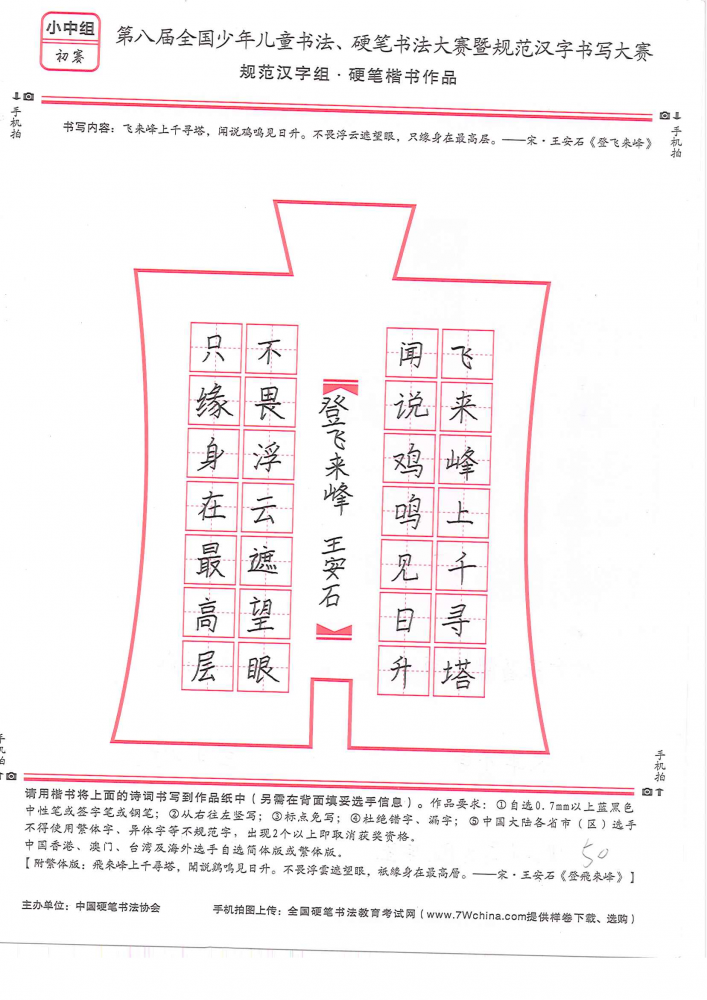 小中组
初赛
第八届全国少年儿童书法、硬笔书法大赛暨规范汉字书写大赛
规范汉字组·硬笔楷书作品
手机拍
手机拍
书写内容：飞来峰上千寻塔，闻说鸡鸣见日升。不畏浮云遮望眼，只缘身在最高层。——宋·王安石《登飞来峰》
飞来峰上千寻塔
闻说鸡鸣见日升
登飞来峰 王安石
不畏浮云遮望眼
只缘身在最高层
手机拍
手机拍
请用楷书将上面的诗词书写到作品纸中（另需在背面填妥选手信息）。作品要求：①自选0.7mm以上蓝黑色
中性笔或签字笔或钢笔；②从右往左竖写；③标点免写；④杜绝错字、漏字；⑤中国大陆各省市（区）选手
不得使用繁体字、异体字等不规范字，出现2个以上即取消获奖资格。
中国香港、澳门、台湾及海外选手自选简体版或繁体版。
50
【附繁体版：飛來峰上千尋塔，聞說鷄鳴見日升。不畏浮雲遮望眼，祇緣身在最高層。——宋·王安石《登飛來峰》】
主办单位：中国硬笔书法协会 手机拍图上传：全国硬笔书法教育考试网（www.7Wchina.com提供样卷下载、选购）